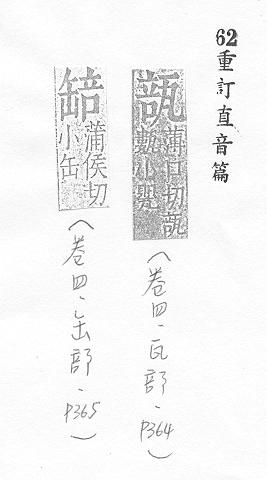 62重訂直音篇
瓿
薄口切瓿
甊小甖
（卷四．瓦部．P364）
䍌
蒲侯切
小缶
（卷四．缶部．P365）